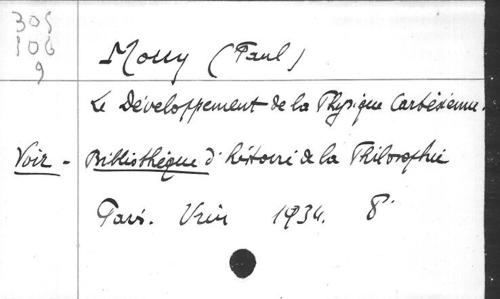 305
106
9
Mouy (Paul)
Le Développement de la Physique Cartésienne.
Voir - Bibliothèque d'histoire de la Philosophie
Paris. Vrin 1934. 8°